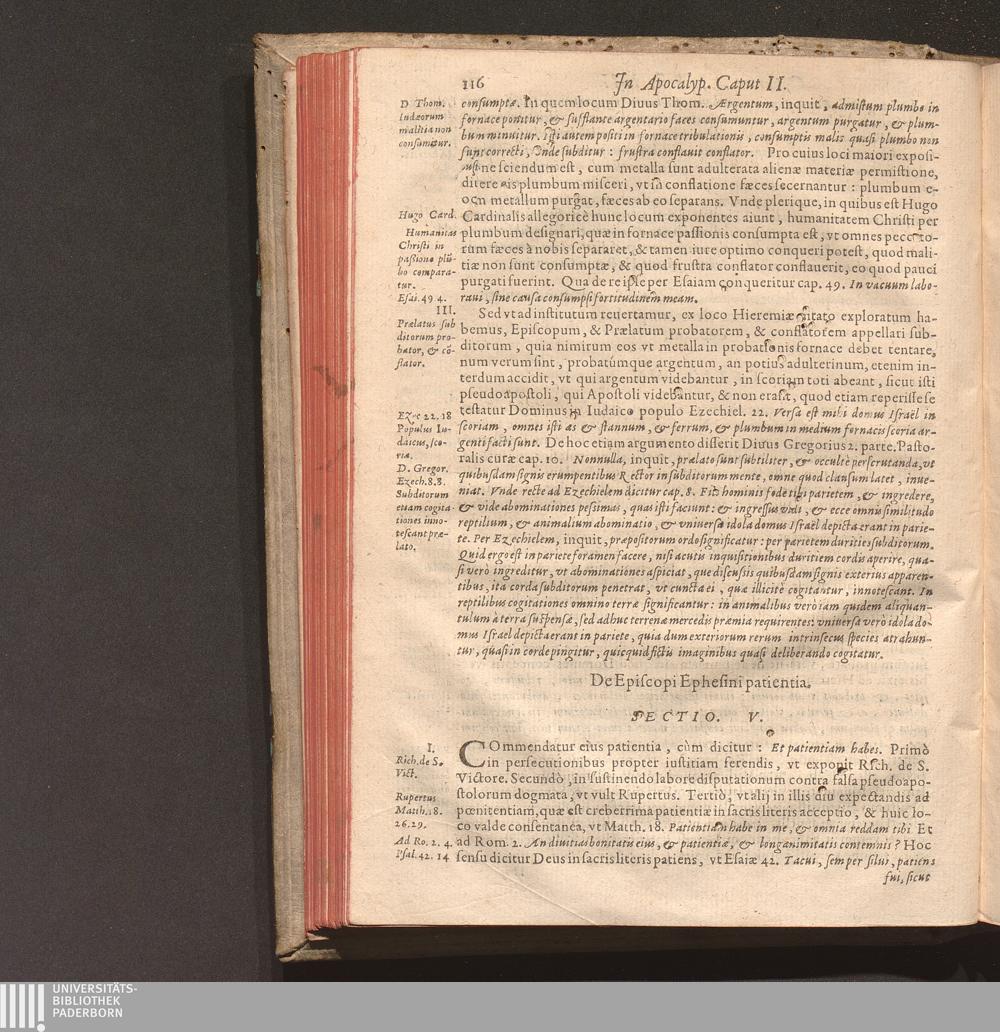 116
In Apocalyp. Caput II.
D Thom.
Iudæorum
malitia non
consumitur.
Hugo Card.
Humanitas
Christi in
passione plū-
bo compara-
tur.
Esai. 49 4.
III.
Prælatus sub
ditorum pro-
bator, & cō-
flator.
Ezec 22. 18
Populus Iu-
daicus, sco-
ria.
D. Gregor.
Ezech. 8.8.
Subditorum
etiam cogita-
tiones inno-
tescant præ-
lato.
consumptæ. In quem locum Diuus Thom. Ærgentum, inquit, admistum plumbo in
fornace ponitur, & sufflante argentario fæces consumuntur, argentum purgatur, & plum-
bum minuitur. Isti autem positi in fornace tribulationis, consumptis malis quasi plumbo non
sunt correcti, Vnde subditur: frustra conflauit conflator. Pro cuius loci maiori exposi-
ne sciendum est, cum metalla sunt adulterata alienæ materiæ permistione,
plumbum misceri, vt sa conflatione fæces secernantur: plumbum e-
metallum purgat, fæces ab eo separans. Vnde plerique, in quibus est Hugo
Cardinalis allegoricè hunc locum exponentes aiunt, humanitatem Christi per
plumbum designari, quæ in fornace passionis consumpta est, vt omnes peccato-
rum fæces à nobis separaret, & tamen iure optimo conqueri potest, quod mali-
tiæ non sunt consumptæ, & quod frustra conflator conflauerit, eo quod pauci
purgati fuerint. Qua de re ipse per Esaiam conqueritur cap. 49. In vacuum labo-
raui, sine causa consumpsi fortitudinem meam.
Sed vt ad institutum reuertamur, ex loco Hieremiæ citato exploratum ha-
bemus, Episcopum, & Prælatum probatorem, & conflatorem appellari sub-
ditorum, quia nimirum eos vt metalla in probationis fornace debet tentare,
num verum sint, probatúmque argentum, an potius adulterinum, etenim in-
terdum accidit, vt qui argentum videbantur, in scoriam toti abeant, sicut isti
pseudoapostoli, qui Apostoli videbantur, & non erant, quod etiam reperisse se
testatur Dominus in Iudaico populo Ezechiel. 22. Versa est mihi domus Israël in
scoriam, omnes isti æs & stannum, & ferrum, & plumbum in medium fornacis scoria ar-
genti facti sunt. De hoc etiam argumento disserit Diuus Gregorius 2. parte. Pasto-
ralis curæ cap. 10. Nonnulla, inquit, prælato sunt subtiliter, & occultè perscrutanda, vt
quibusdam signis erumpentibus Rector in subditorum mente, omne quod clausum latet, inue-
niat. Vnde recte ad Ezechielem dicitur cap. 8. Fili hominis fode tibi parietem, & ingredere,
& vide abominationes pessimas, quas isti faciunt: & ingressus vidi, & ecce omnis similitudo
reptilium, & animalium abominatio, & vniuersa idola domus Israël depicta erant in parie-
te. Per Ezechielem, inquit, præpositorum ordo significatur: per parietem durities subditorum.
Quid ergo est in pariete foramen facere, nisi acutis inquisitionibus duritiem cordis aperire, qua-
si verò ingreditur, vt abominationes aspiciat, que discussis quibusdam signis exterius apparen-
tibus, ita corda subditorum penetrat, vt cuncta ei, quæ illicitè cogitantur, innotescant. In
reptilibus cogitationes omnino terræ significantur: in animalibus verò iam quidem aliquan-
tulum à terra suspensæ, sed adhuc terrenæ mercedis præmia requirentes: vniuersa verò idola do-
mus Israel depicta erant in pariete, quia dum exteriorum rerum intrinsecus species atrahun-
tur, quasi in corde pingitur, quicquid fictis imaginibus quasi deliberando cogitatur.
De Episcopi Ephesini patientia.
SECTIO. V.
I.
Rich. de S.
Vict.
Rupertus
Matth. 18.
26.29.
Ad Ro. 2. 4.
Psal. 42. 14
COmmendatur eius patientia, cùm dicitur: Et patientiam habes. Primò
in persecutionibus propter iustitiam ferendis, vt exponit Rich. de S.
Victore. Secundò, in sustinendo labore disputationum contra falsa pseudoapo-
stolorum dogmata, vt vult Rupertus. Tertiò, vt alij in illis diu expectandis ad
pœnitentiam, quæ est creberrima patientiæ in sacris literis acceptio, & huic lo-
co valde consentanea, vt Matth. 18. Patientiam habe in me, & omnia reddam tibi Et
ad Rom. 2. An diuitias bonitatis eius, & patientiæ, & longanimitatis contemnis? Hoc
sensu dicitur Deus in sacris literis patiens, vt Esaiæ 42. Tacui, semper silui, patiens
fui, sicut
UNIVERSITÄTS-
BIBLIOTHEK
PADERBORN